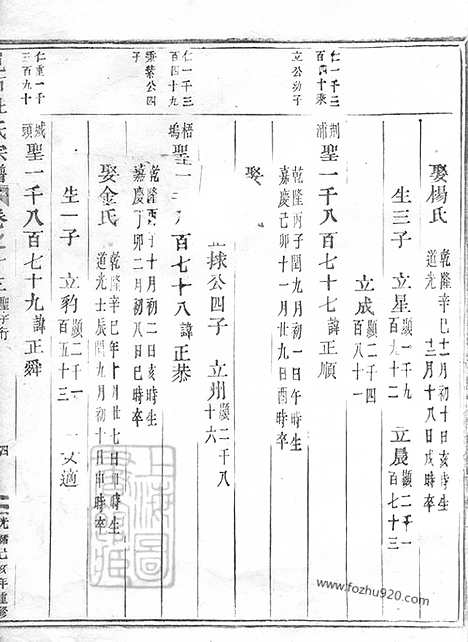 娶楊氏 乾隆辛巳十一月初十日亥時生
道光 三月十八日戌時卒
生三子 立星 顯二千一百九十二 立晨 顯二千一百七十三
立成 顯二千四
仁一千三百四十
立公幼子
荆浦 聖一千八百七十七 諱正順
乾隆丙子閏九月初一日午時生
嘉慶己卯十一月廿九日酉時卒
娶
公四子 立州 顯二千八十六
仁一千三百四十九
公四子
梧塢 聖一千八百七十八 諱正恭
乾隆丙 十月初二日亥時生
嘉慶丁卯二月初八日巳時卒
娶金氏 乾隆辛巳年十月廿七日 時生
道光壬辰閏九月初十日 時卒
生一子 立豹 顯二千一百五十三 一女適
仁一千三百九十
城頭 聖一千八百七十九 諱正舜
氏宗譜 卷之 十三 聖字行
四
光緒己亥年重修
上海圖書館藏
www.fozhu920.com